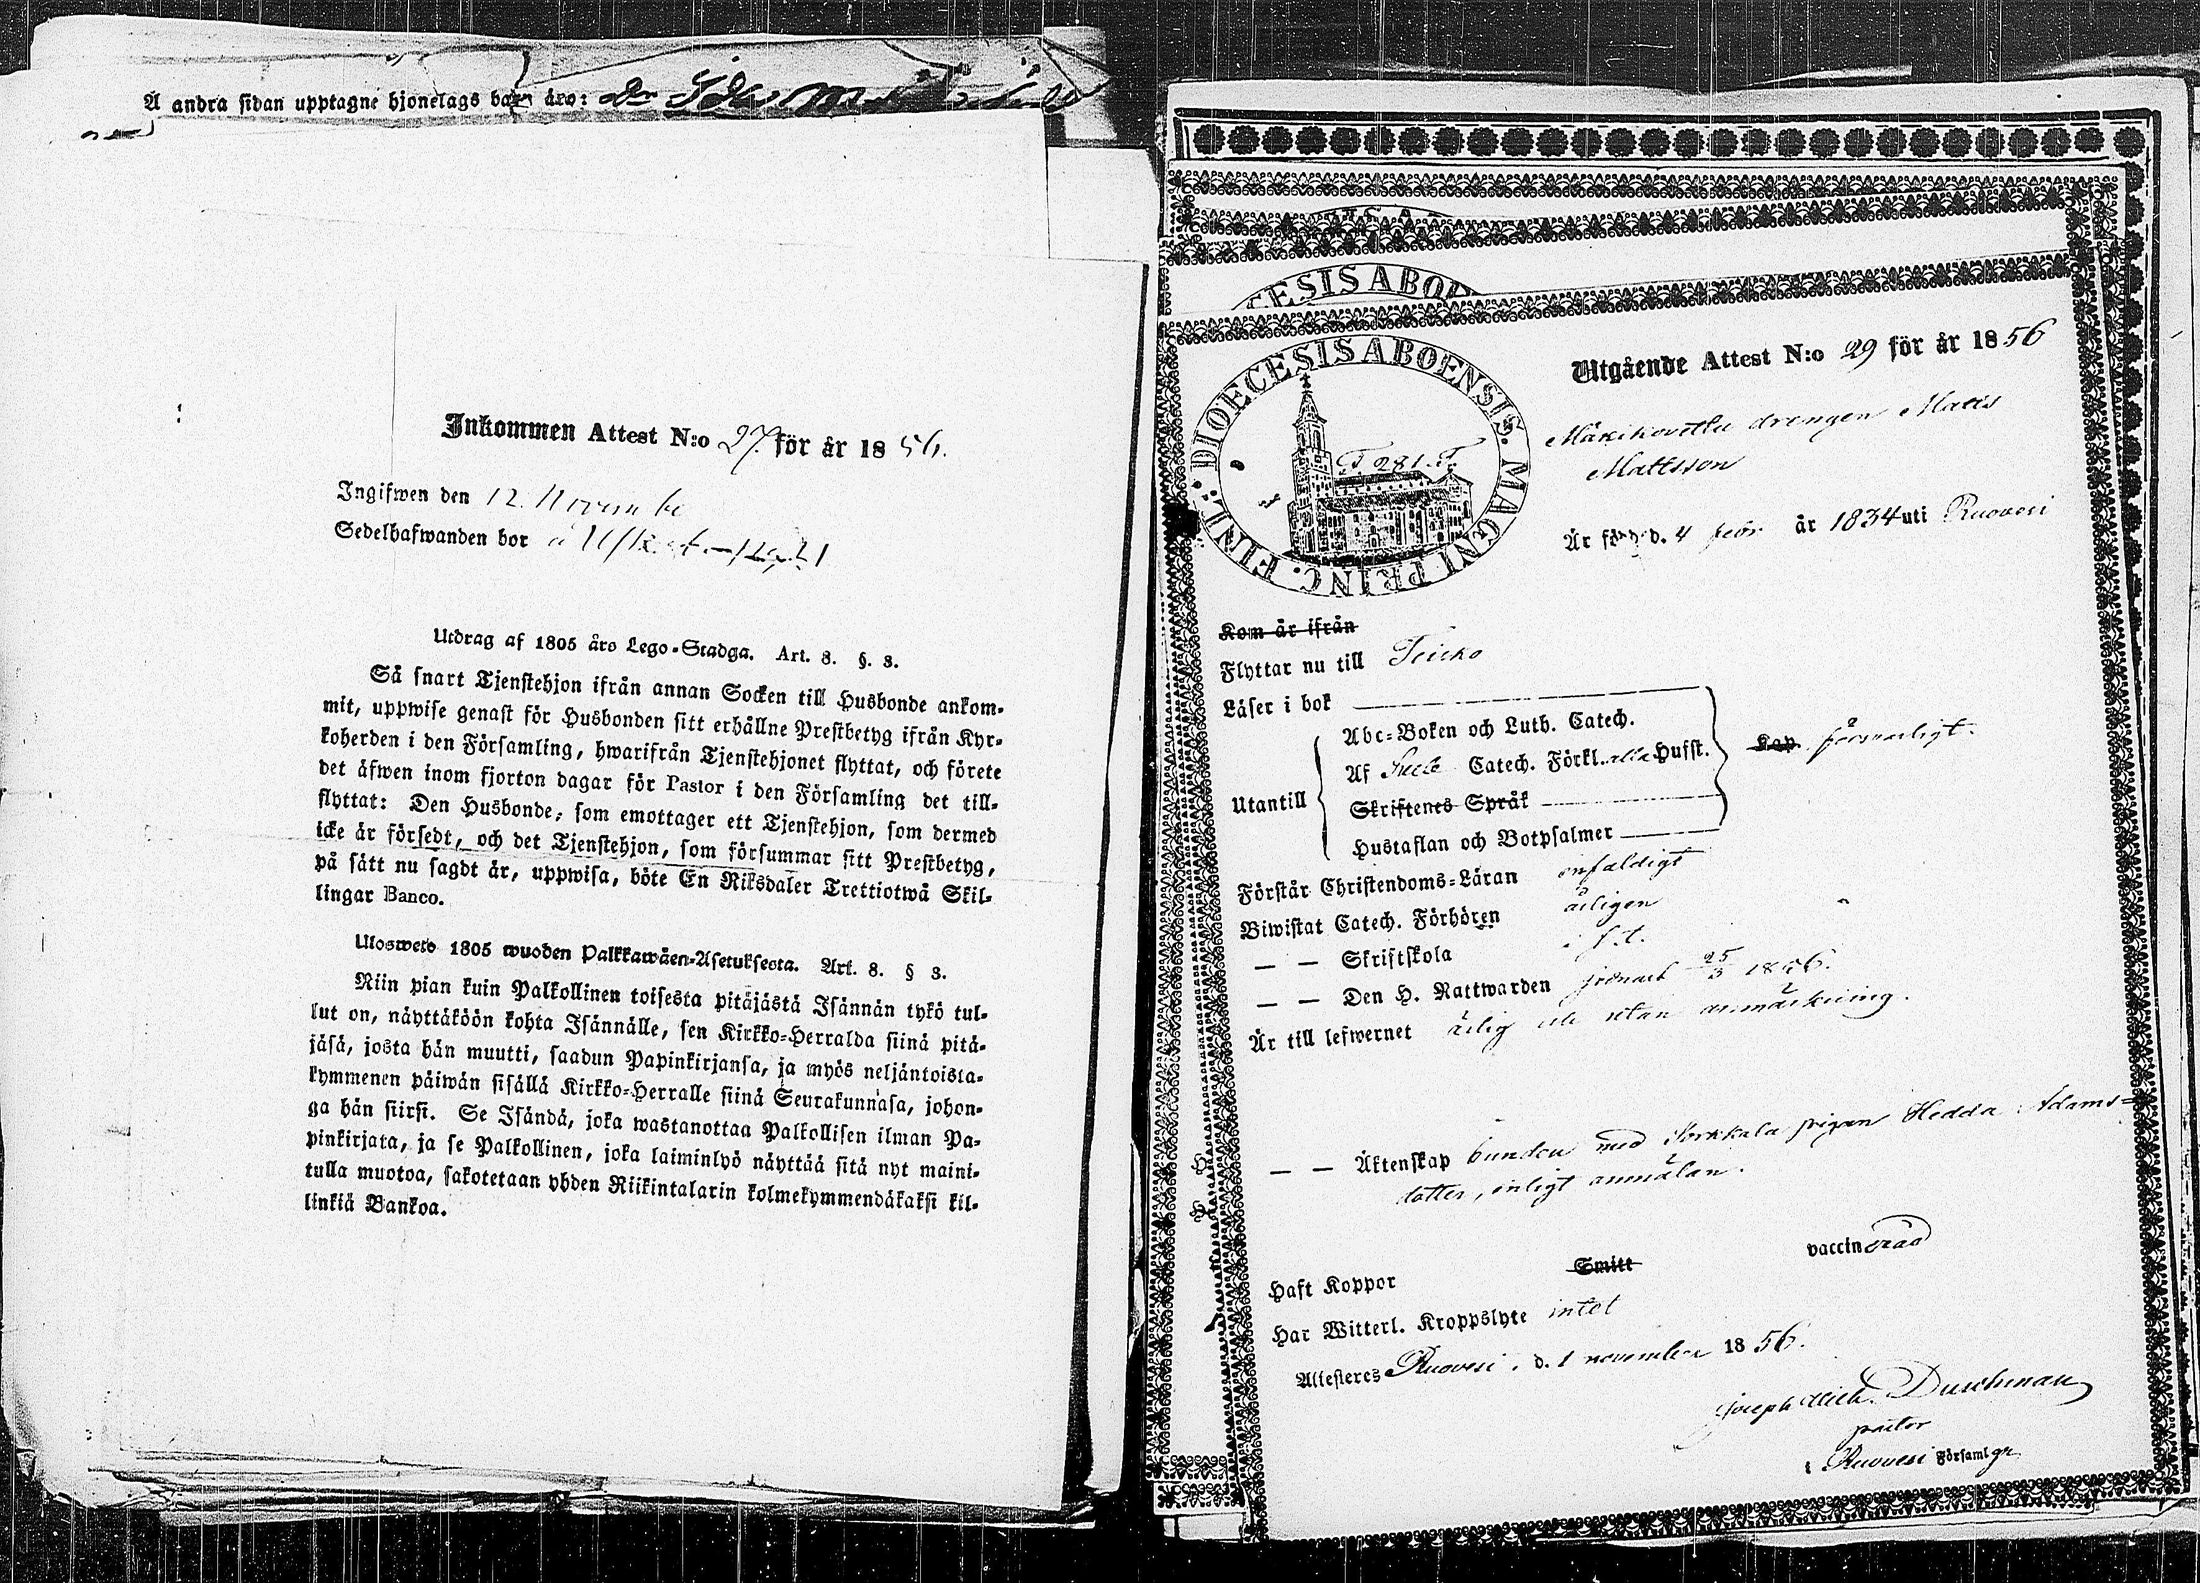 A andra sidan upptagne hjonelags barn äro:
Inkommen Attest N:o 27. för år 1856.
Ingifwen den 12. Novembe
Sedelhafwanden bor å
Utdrag af 1805 års Lego-Stadga. Art. 8. §. 3.
Så snart Tjenstehjon ifrån annan Socken till Husbonde ankom-
mit, uppwise genast för Husbonden sitt erhållne Prestbetyg ifrån Kyr-
koherden i den Församling, hwarifrån Tjenstehjonet flyttat, och förete
det äfwen inom fjorton dagar för Pastor i den Församling det till-
flyttat: Den Husbonde, som emottager ett Tjenstehjon, som dermed
icke är försedt, och det Tjenstehjon, som försummar sitt Prestbetyg,
på sätt nu sagdt är, uppwisa, böte En Riksdaler Trettiotwå Skil-
lingar Banco.
Ulosweto 1805 wuoden Palkkawäen-Asetuksesta. Art. 8. § 3.
Niin pian kuin Palkollinen toisesta pitäjästä Isännän tykö tul-
lut on, näyttäköön kohta Isännälle, sen Kirkko-Herralda siinä pitä-
jäsä, josta hän muutti, saadun Papinkirjansa, ja myös neljäntoista-
kymmenen päiwän sisällä Kirkko-Herralle siinä Seurakunnasa, johon-
ga hän siirsi. Se Isändä, joka wastanottaa Palkollisen ilman Pa-
pinkirjata, ja se Palkollinen, joka laiminlyö näyttää sitä nyt maini-
tulla muotoa, sakotetaan yhden Riikintalarin kolmekymmendäkaksi kil-
linkiä Bankoa.
CESIS ABO
DIOECESIS ABOENSIS. MAGNI PRINC. FINL.
Utgående Attest N:o 29 för år 1856
drengen Matts
Mattsson
Är född d. 4 febr. år 1834 uti Ruovesi
Kom är ifrån
Flyttar nu till Teisko
Läser i bok
Abc-Boken och Luth. Catech.
Af Catech. Förkl. alla Husst.
Kap. försvarligt.
Utantill
Skriftenes Språk
Hustaflan och Botpsalmer
Förstår Christendoms-Läran enfaldigt
Biwistat Catech. Förhören årligen
— — Skriftskola i s. t.
— — Den H. Nattwarden senast 25/3 1856.
Är till lefwernet ärlig och utan anmärkning.
— — Äktenskap bunden med Sorkkala pigan Hedda Adams-
dotter, enligt anmälan.
Haft Koppor Smitt vaccinerad
Har Witterl. Kroppslyte intet
Attesteres Ruovesi. d. 1 november 1856.
Joseph Mich. Duschman
pastor
i Ruovesi Församlgn